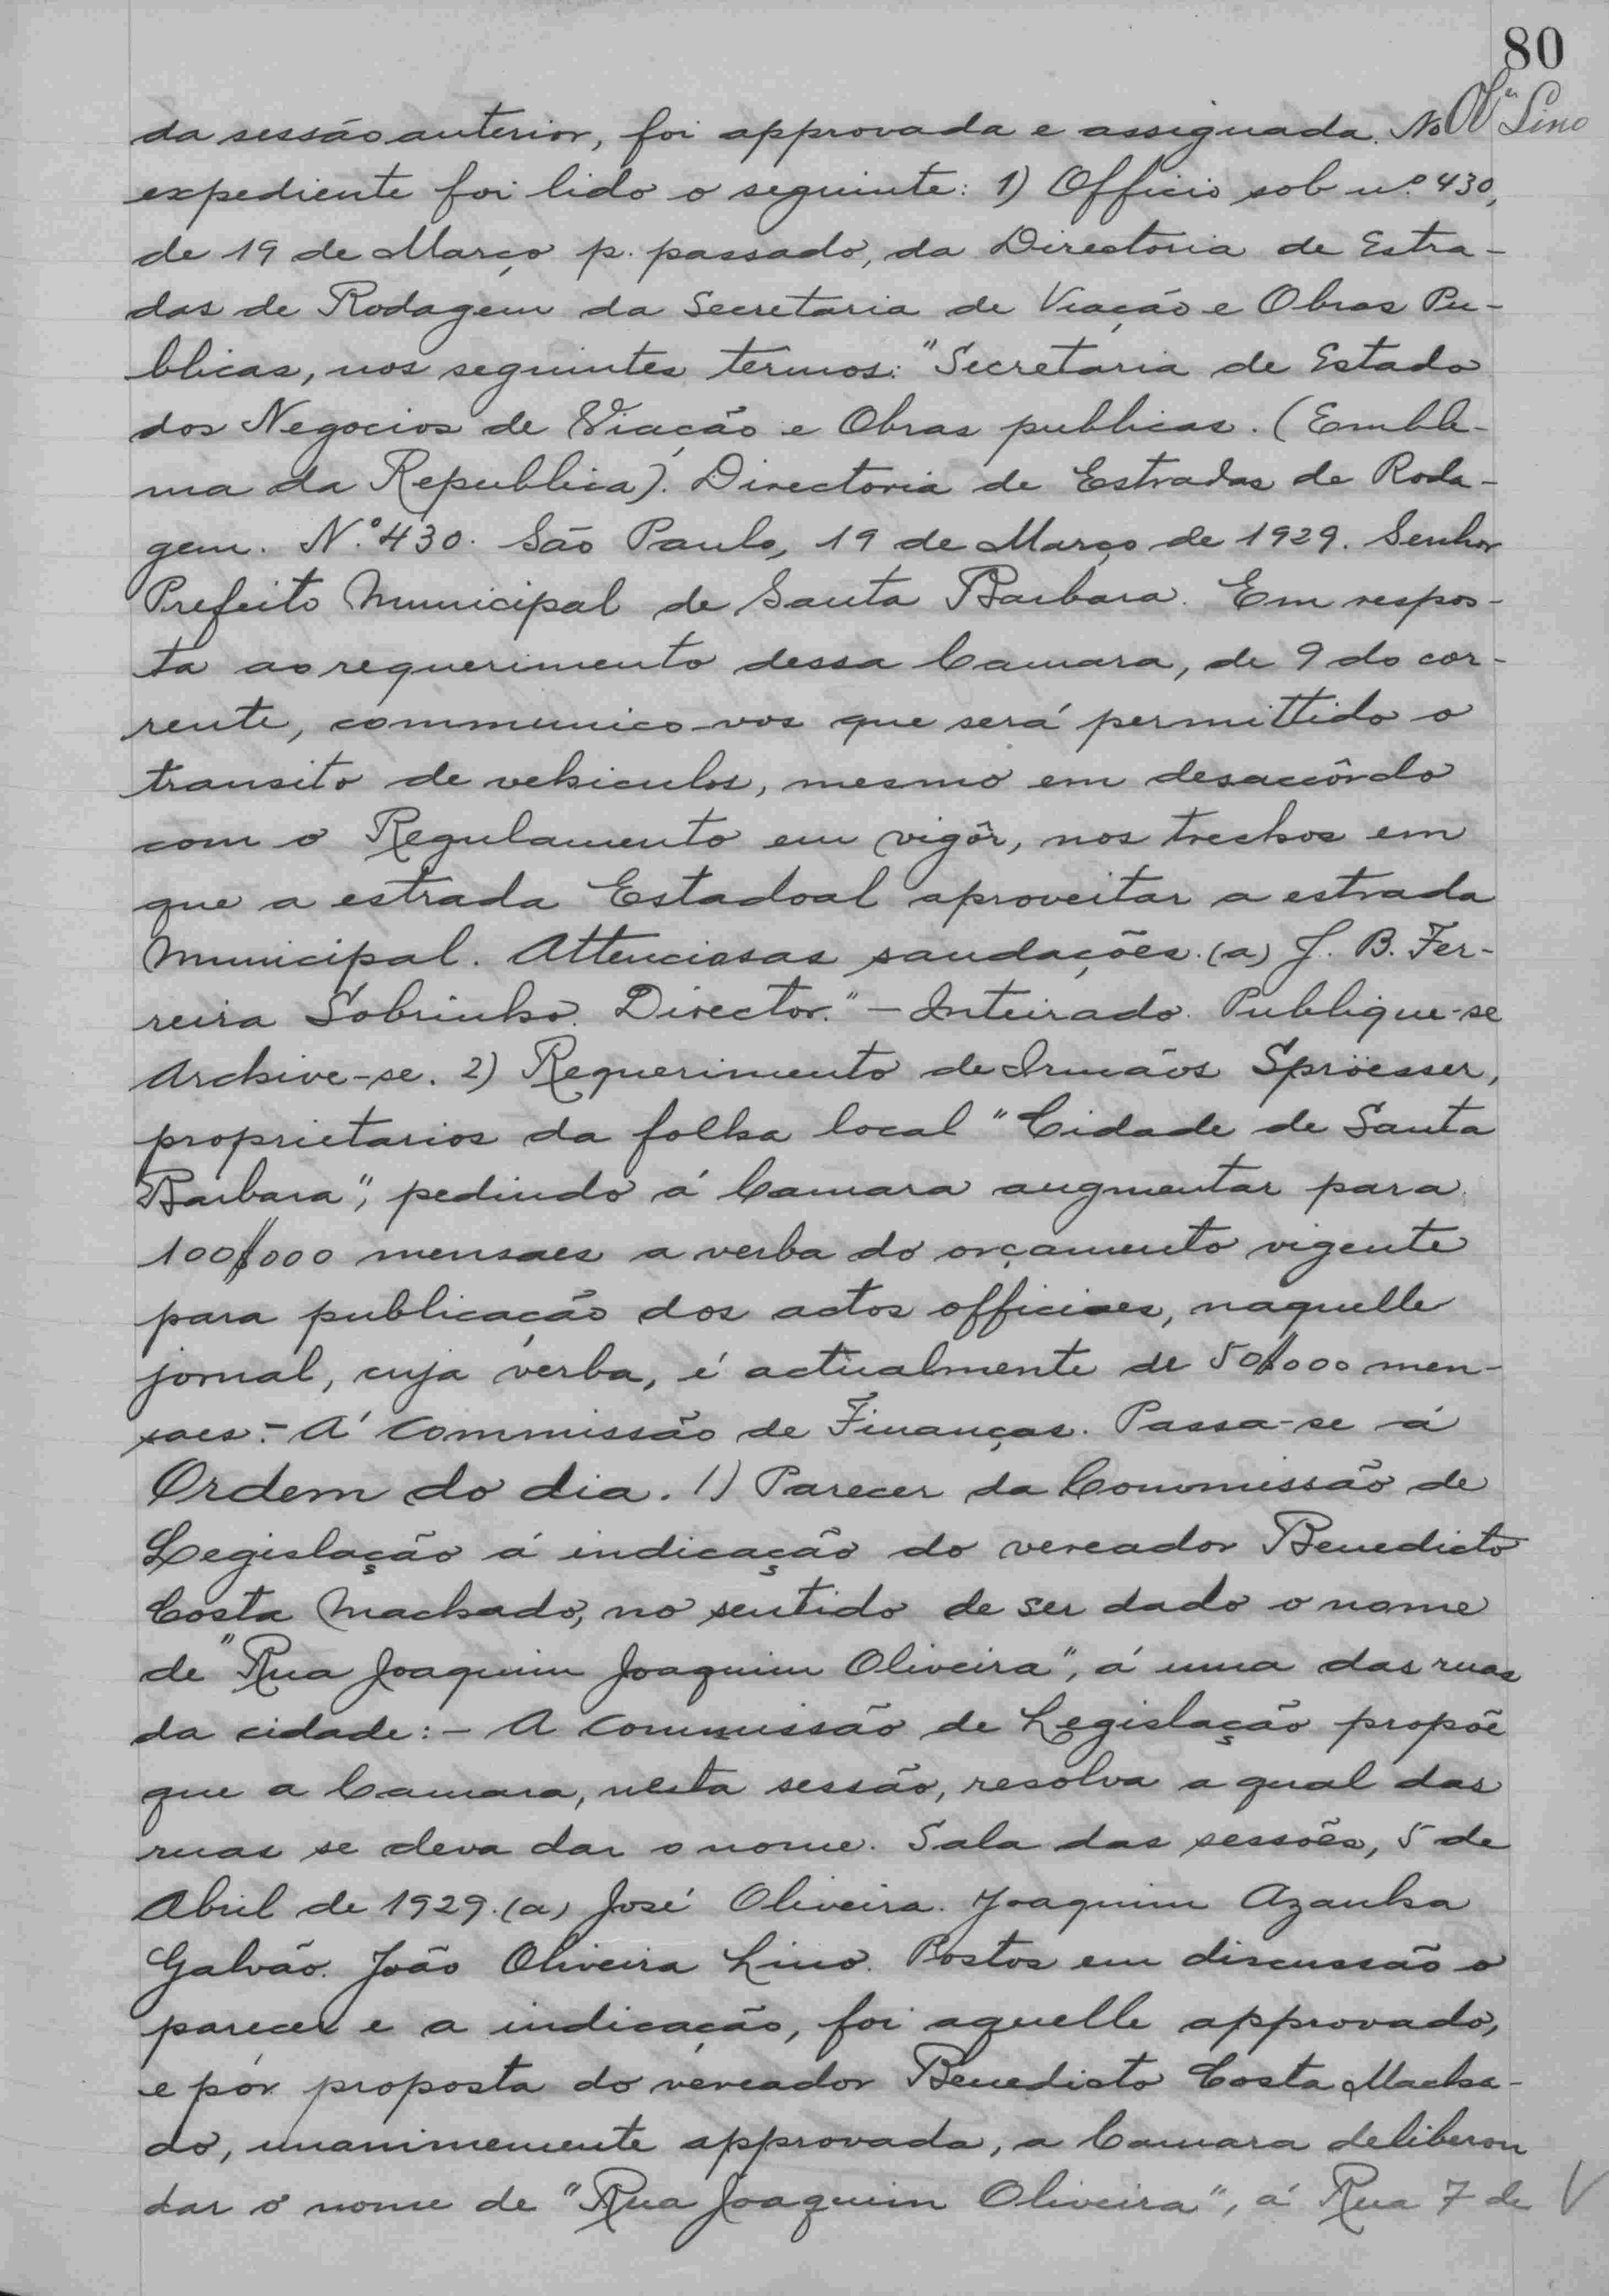 80
da sessão anterior, foi approvada e assignada. No Lino
expediente foi lido o seguinte: 1) Officio sob n.º 430,
de 19 de Março p. passado, da Directoria de Estra-
das de Rodagem da Secretaria de Viação e Obras Pu-
blicas, nos seguintes termos: "Secretaria de Estado
dos Negocios de Viação e Obras publicas. (Emble-
ma da Republica). Directoria de Estradas de Roda-
gem. N.º 430. São Paulo, 19 de Março de 1929. Senhor
Prefeito Municipal de Santa Barbara. Em respos-
ta ao requerimento dessa Camara, de 9 do cor-
rente, communico-vos que será permittido o
transito de vehiculos, mesmo em desaccôrdo
com o Regulamento em vigôr, nos trechos em
que a estrada Estadoal aproveitar a estrada
Municipal. Attenciosas saudações. (a) J. B. Fer-
reira Sobrinho. Director." - Inteirado. Publique-se
Archive-se. 2) Requerimento de Irmãos Spröesser,
proprietarios da folha local "Cidade de Santa
Barbara", pedindo á Camara augmentar para
100$000 mensaes a verba do orçamento vigente
para publicação dos actos officiaes, naquelle
jornal, cuja verba, é actualmente de 50$000 men-
saes. - Á Commissão de Finanças. Passa-se á
Ordem do dia. 1) Parecer da Commissão de
Legislação á indicação do vereador Benedicto
Costa Machado, no sentido de ser dado o nome
de "Rua Joaquim Joaquim Oliveira", á uma das ruas
da cidade: - A Commissão de Legislação propõe
que a Camara, nesta sessão, resolva a qual das
ruas se deva dar o nome. Sala das sessões, 5 de
Abril de 1929. (a) José Oliveira. Joaquim Azanha
Galvão. João Oliveira Lino. Postos em discussão o
parecer e a indicação, foi aquelle approvado,
e por proposta do vereador Benedicto Costa Macha-
do, unanimemente approvada, a Camara deliberou
dar o nome de "Rua Joaquim Oliveira", á Rua 7 de